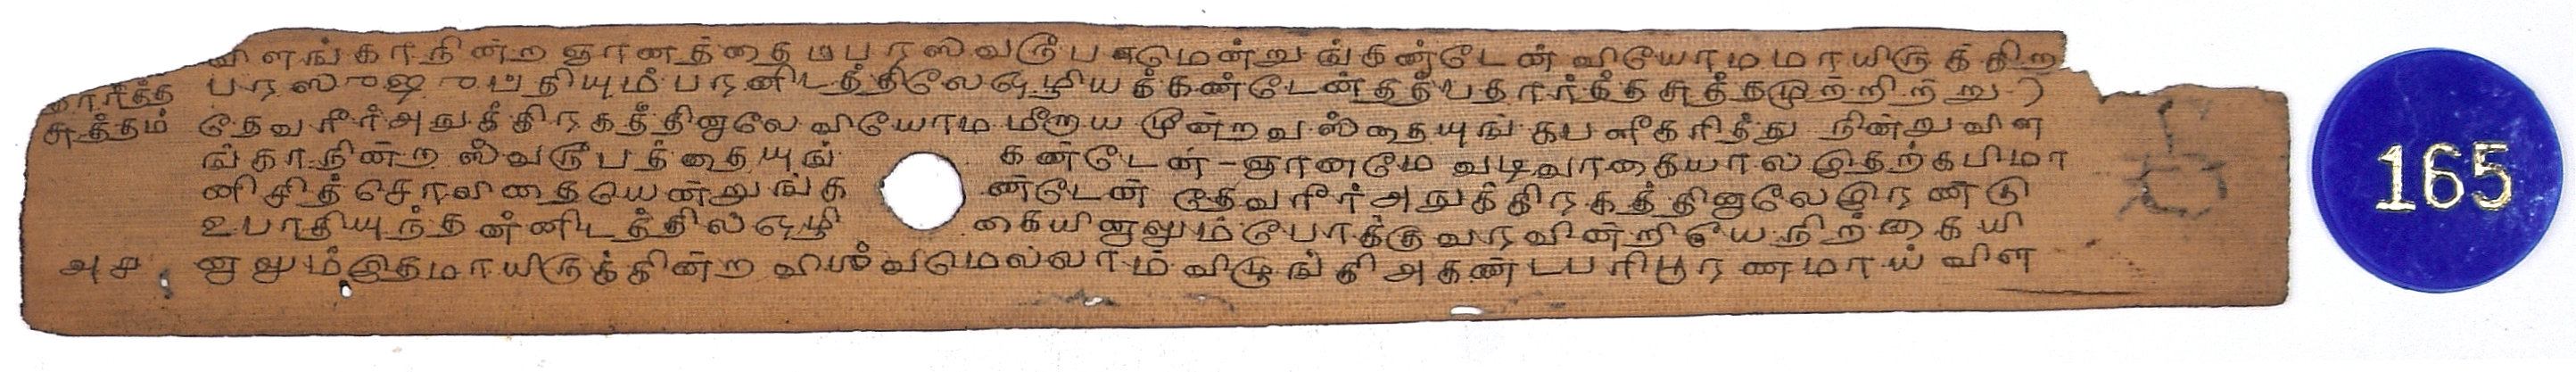 விளங்காநின்ற ஞானத்தை பரஸ்வரூபமென்றுங்கண்டேன் வியோமமாயிருக்கிற
பரஸுஷுப்தியும்பரனிடத்திலேஒழியக்கண்டேன்தத்பதார்த்தசுத்தமுற்றிற்று)
தார்த்த
சுத்தம்
தேவரீர்அநுக்கிரகத்தினாலே வியோமமீறாய மூன்றவஸ்தையுங் கபளீகரித்து நின்றுவிள
ங்காநின்ற ஸ்வரூபத்தையுங் கண்டேன்-ஞானமே வடிவாகையால்இதற்கபிமா
னிசித்சொலிதையென்றுங்க ண்டேன் தேவரீர் அநுக்கிரகத்தினாலேஇரண்டு
உபாதியுந்தன்னிடத்தில்ஒழி கையினாலும்போக்குவரவின்றியேநிற்கையி
அச
னாலும்இதமாயிருக்கின்ற விஶ்வமெல்லாம் விழுங்கி அகண்டபரிபூரணமாய் விள
165